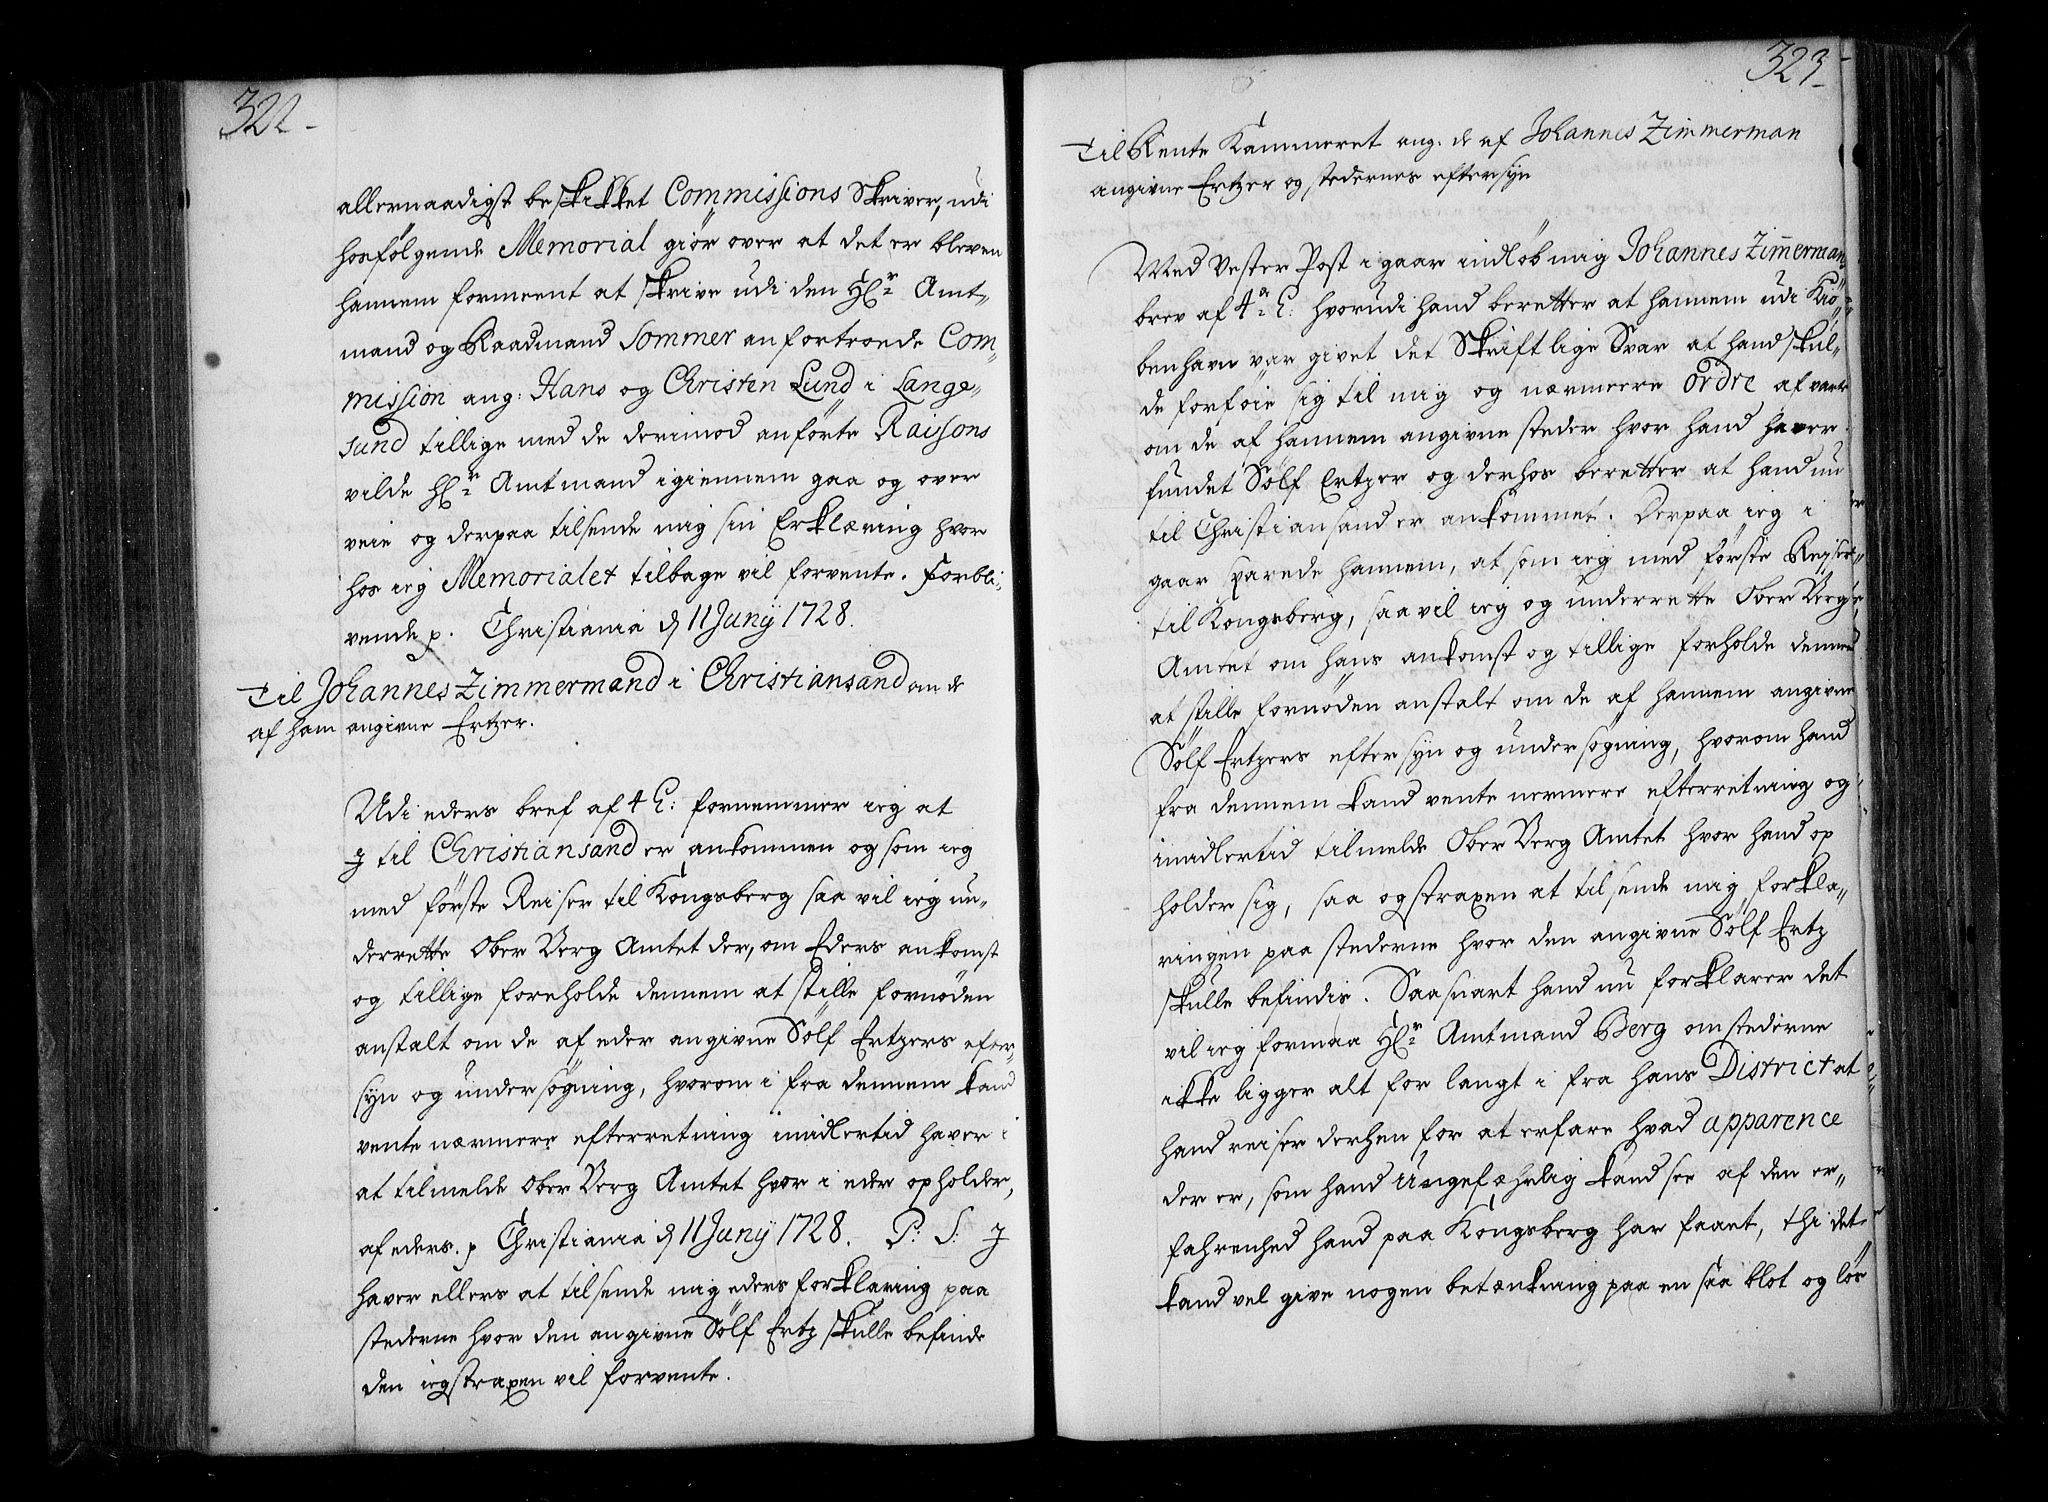 322-
allernaadigst beskikket Commissions Skriver, udi
hosfölgende Memorial giör over at det er bleven
hannem formeent at skrive udi den Hr Amt-
mand og Raadmand Sommer anfortroede Com-
mission ang: Hans og Christen Lund i Lange-
sund tillige med de derimod anförte Raisons
vilde Hr Amtmand igiennem gaa og over
veie og derpaa tilsende mig sin Erklæring hvor
hos ieg Memorialet tilbage vil forvente. Forbli-
vende p. Christiania d 11 Junij 1728.
Til Johannes Zimmermand i Christiansand om de
af ham angivne Ertzer.
Udi eders bref af 4 h: fornemmer ieg at
J til Christiansand er ankommen og som ieg
med förste Reiser til Kongsberg saa vil ieg un-
derrette Ober Berg Amtet der, om Eders ankomst
og tillige foreholde dennem at stille fornöden
anstalt om de af eder angivne Sölf Ertzers efter-
syn og undersögning, hvorom i fra dennem kand
vente nærmere efterretning imidlertid haver i
at tilmelde Ober Berg Amtet hvor i eder opholder,
af eders. p Christiania d 11 Junij 1728. P: S: J
haver ellers at tilsende mig eders forklaring paa
stederne hvor den angivne Sölf Ertz skulle befinde
den ieg straxen vil forvente.
323-
Til Rente Kammeret ang. de af Johannes Zimmerman
angivne Ertzer og stedernes eftersyn
Med Vester Post i gaar indlöb mig Johannes Zimmermans
brev af 4de h: hvorudi hand beretter at hannem udi Kiö-
benhavn var givet det Skriftlige Svar at hand skul-
de forföie sig til mig og nærmeere ordre afvarte
om de af hannem angivne steder hvor hand haver
fundet Sölf Ertzer og derhos beretter at hand nu
til Christiansand er ankommet. Derpaa ieg i
gaar svarede hannem, at som ieg med förste Reyser
til Kongsberg, saa vil ieg og underrette Ober Berg
Amtet om hans ankomst og tillige forholde dennem
at stille fornöden anstalt om de af hannem angivne
Sölf Ertzers eftersyn og undersögning, hvorom hand
fra dennem kand vente nermere efterretning og
imidlertid tilmelde Ober Berg Amtet hvor hand op
holder sig, saa og straxen at tilsende mig forkla-
ringen paa stederne hvor den angivne Sölf Ertz
skulle befindis. Saasnart hand nu forklarer det
vil ieg formaa Hr Amtmand Berg om stederne
ikke ligger alt for langt i fra hans District at
hand reiser derhen for at erfare hvad apparence
der er, som hand ungefæhrlig kand see af den er-
fahrenhed hand paa Kongsberg har faaet, thi det
kand vel give nogen betænkning paa en saa blot og lös